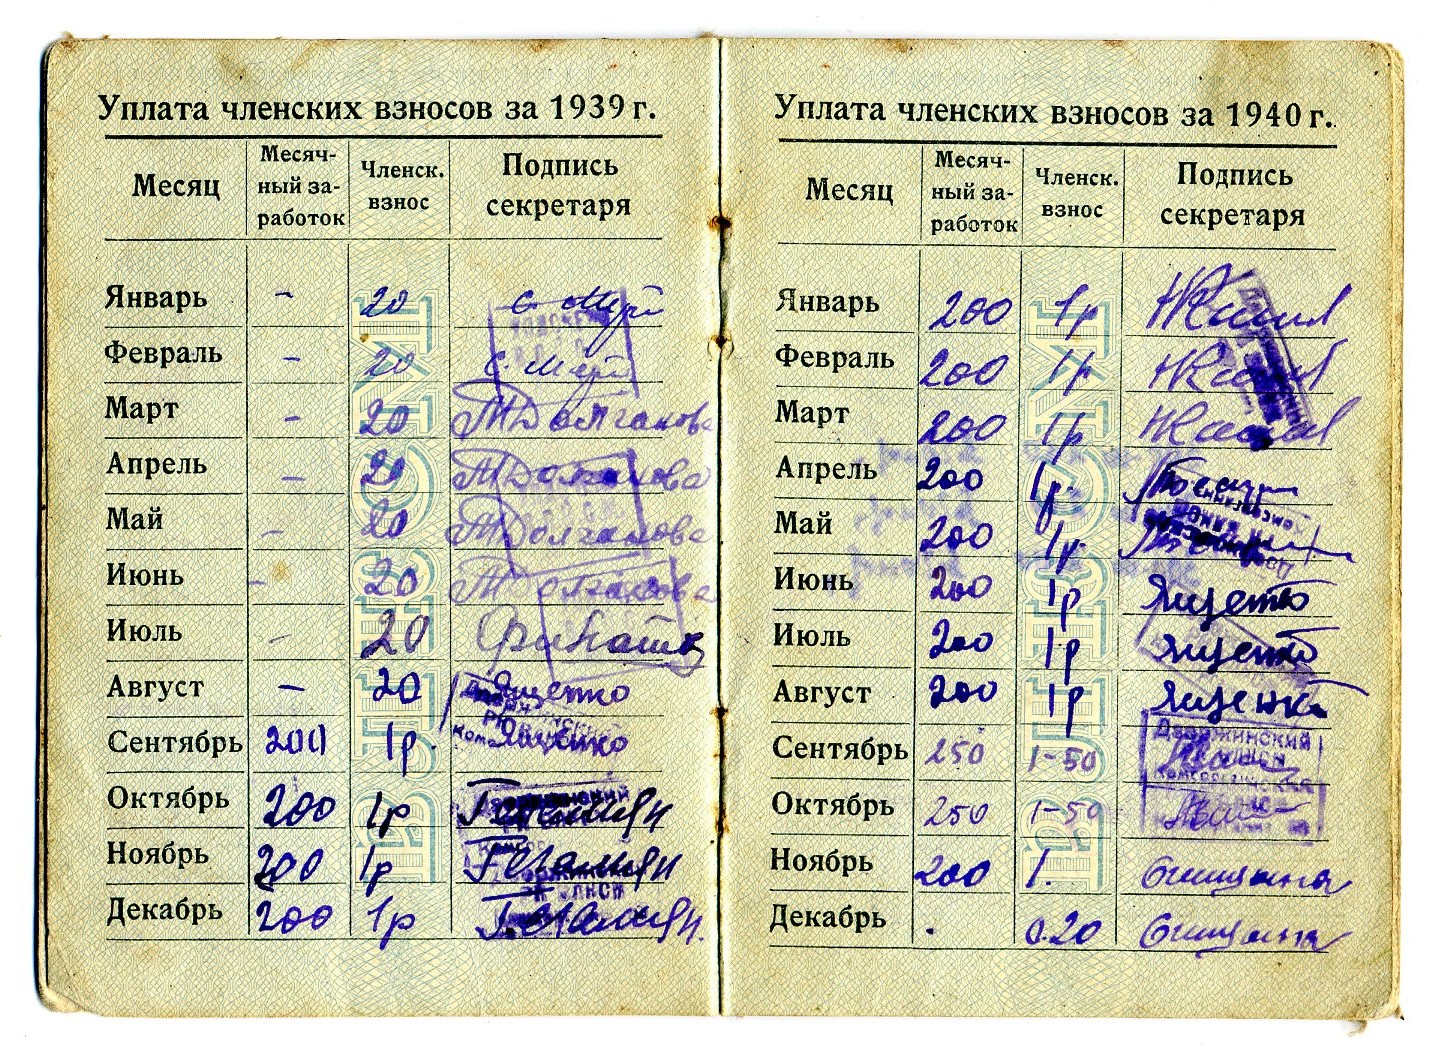 Уплата членских взносов за 1939 г.
Месяц Месяч- ный за- работок Членск. взнос Подпись секретаря
Январь - 20
Февраль - 20
Март - 20 Долганова
Апрель - 20 Долганова
Май - 20 Долганова
Июнь - 20 Долганова
Июль - 20
Август - 20 Яценко
Сентябрь 200 1р. Яценко
Октябрь 200 1р
Ноябрь 200 1р
Декабрь 200 1р
ВЛКСМ
Уплата членских взносов за 1940 г.
Месяц Месяч- ный за- работок Членск. взнос Подпись секретаря
Январь 200 1р
Февраль 200 1р
Март 200 1р
Апрель 200 1р
Май 200 1р
Июнь 200 1р Яценко
Июль 200 1р Яценко
Август 200 1р Яценко
Сентябрь 250 1-50
Октябрь 250 1-50
Ноябрь 200 1.
Декабрь . 0.20
Дзержинский
ВЛКСМ